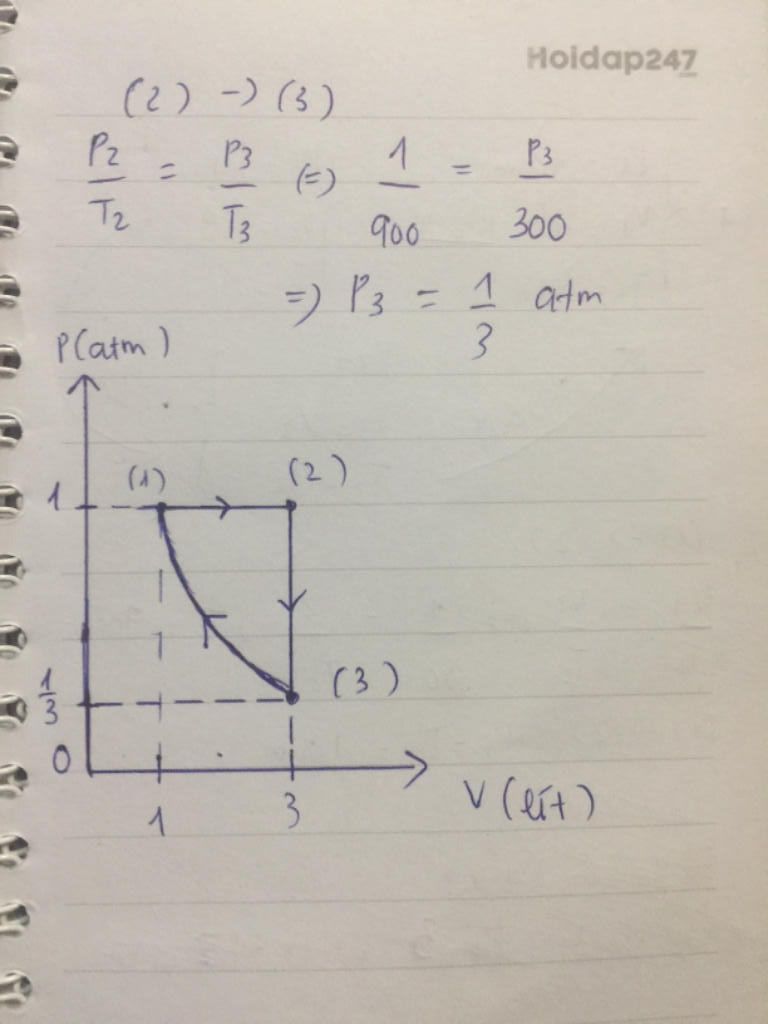 Hoidap247
(2) -> (3)
P2/T2 = P3/T3 (=) 1/900 = P3/300
=) P3 = 1/3 atm
P(atm)
(1) (2)
1
(3)
1/3
0
1 3
V (lít)